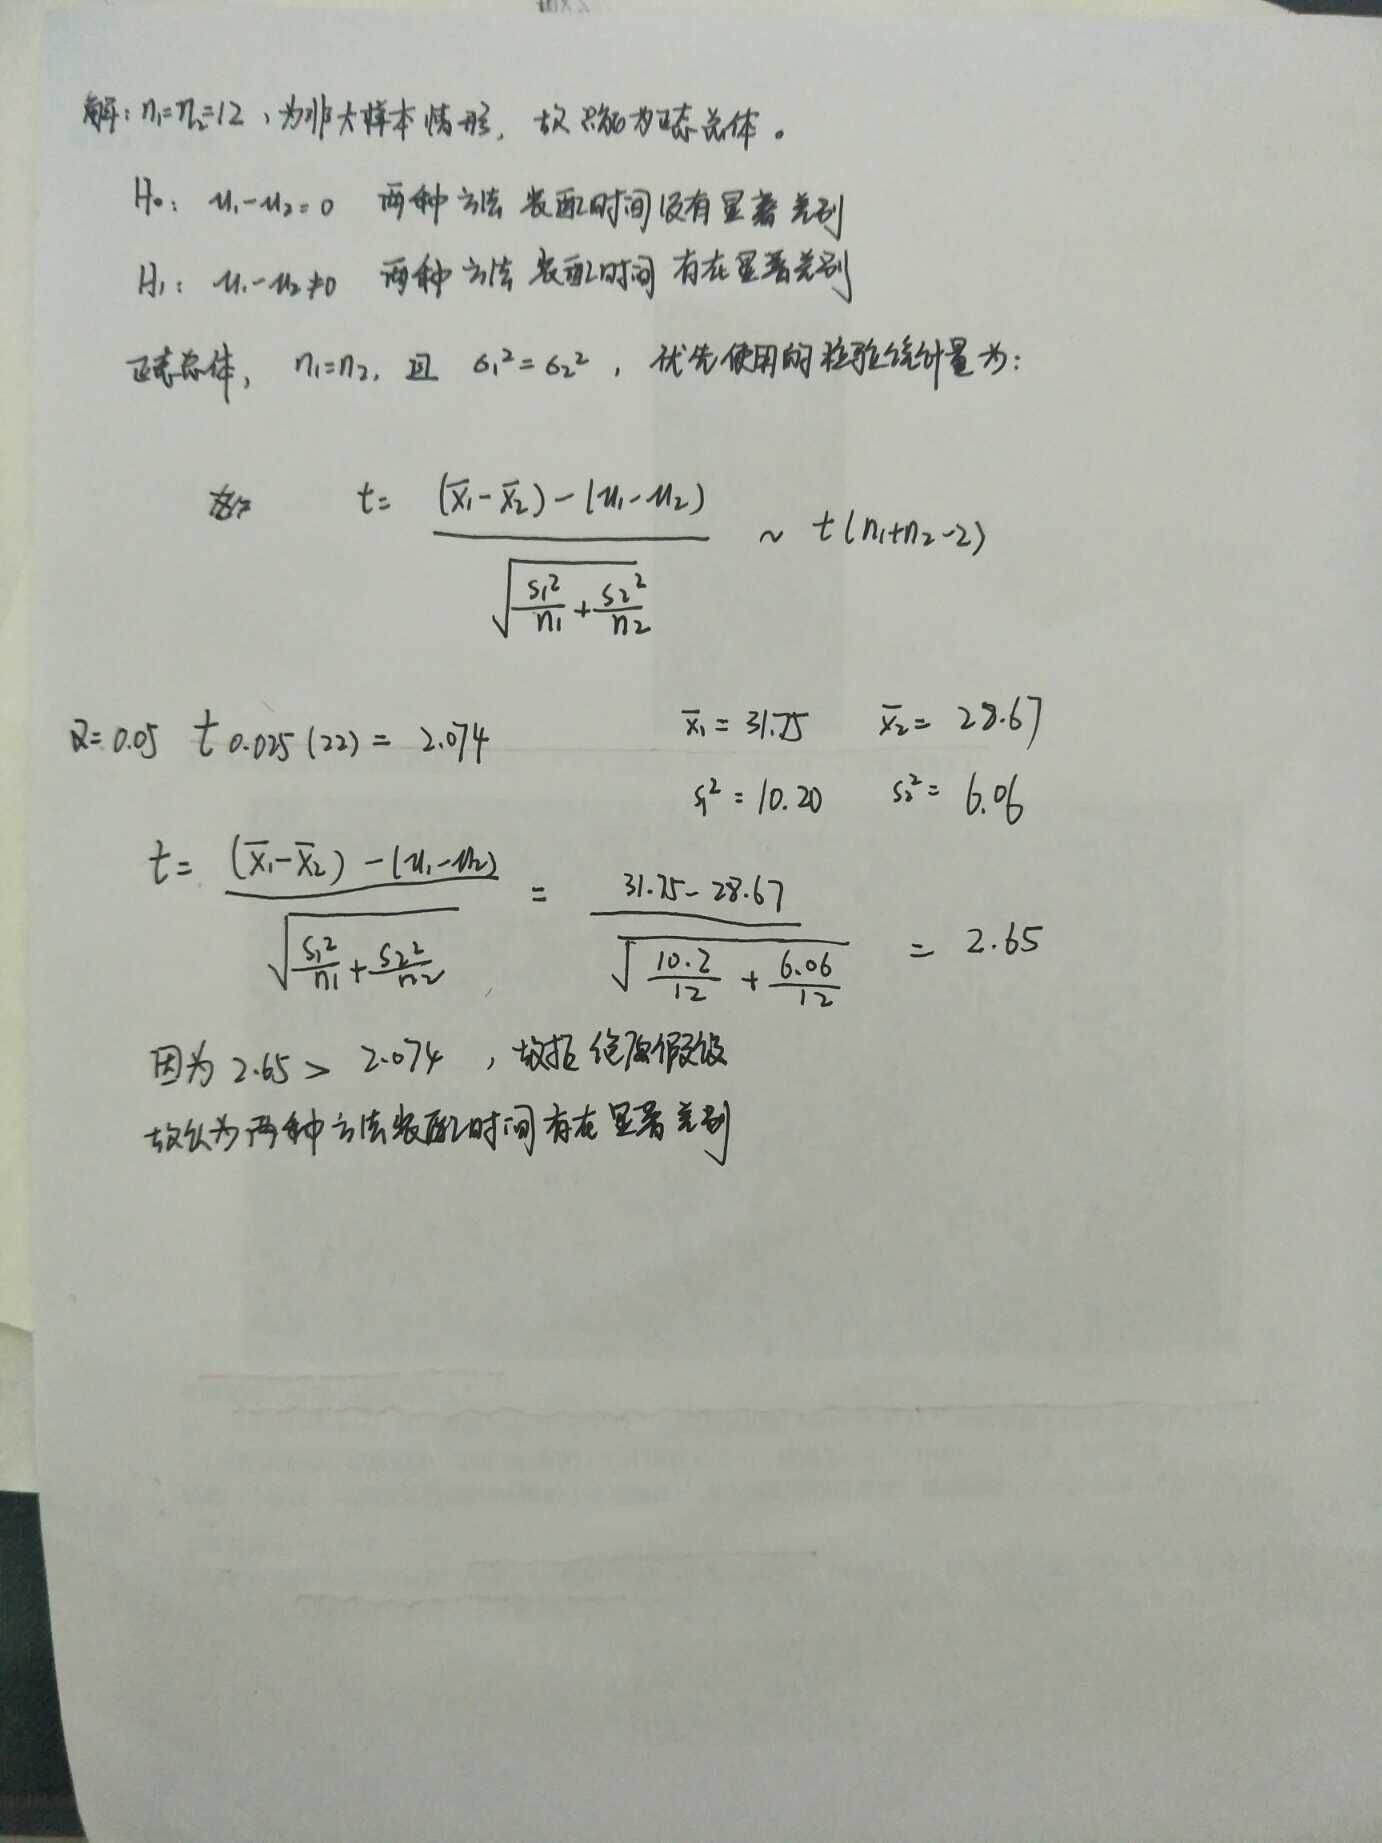 解：n₁=n₂=12，为非大样本情形，故只能为正态总体。
H₀： μ₁-μ₂=0 两种方法装配时间没有显著差别
H₁： μ₁-μ₂≠0 两种方法装配时间存在显著差别
正态总体， n₁=n₂，且 σ₁²=σ₂²，优先使用的检验统计量为：
t= (x̄₁-x̄₂)-(μ₁-μ₂) / √(s₁²/n₁+s₂²/n₂) ~ t(n₁+n₂-2)
α=0.05 t 0.025(22)= 2.074 x̄₁=31.75 x̄₂=28.67
s₁²=10.20 s₂²=6.06
t= (x̄₁-x̄₂)-(μ₁-μ₂) / √(s₁²/n₁+s₂²/n₂) = 31.75-28.67 / √(10.2/12+6.06/12) = 2.65
因为 2.65> 2.074，故拒绝原假设
故认为两种方法装配时间存在显著差别